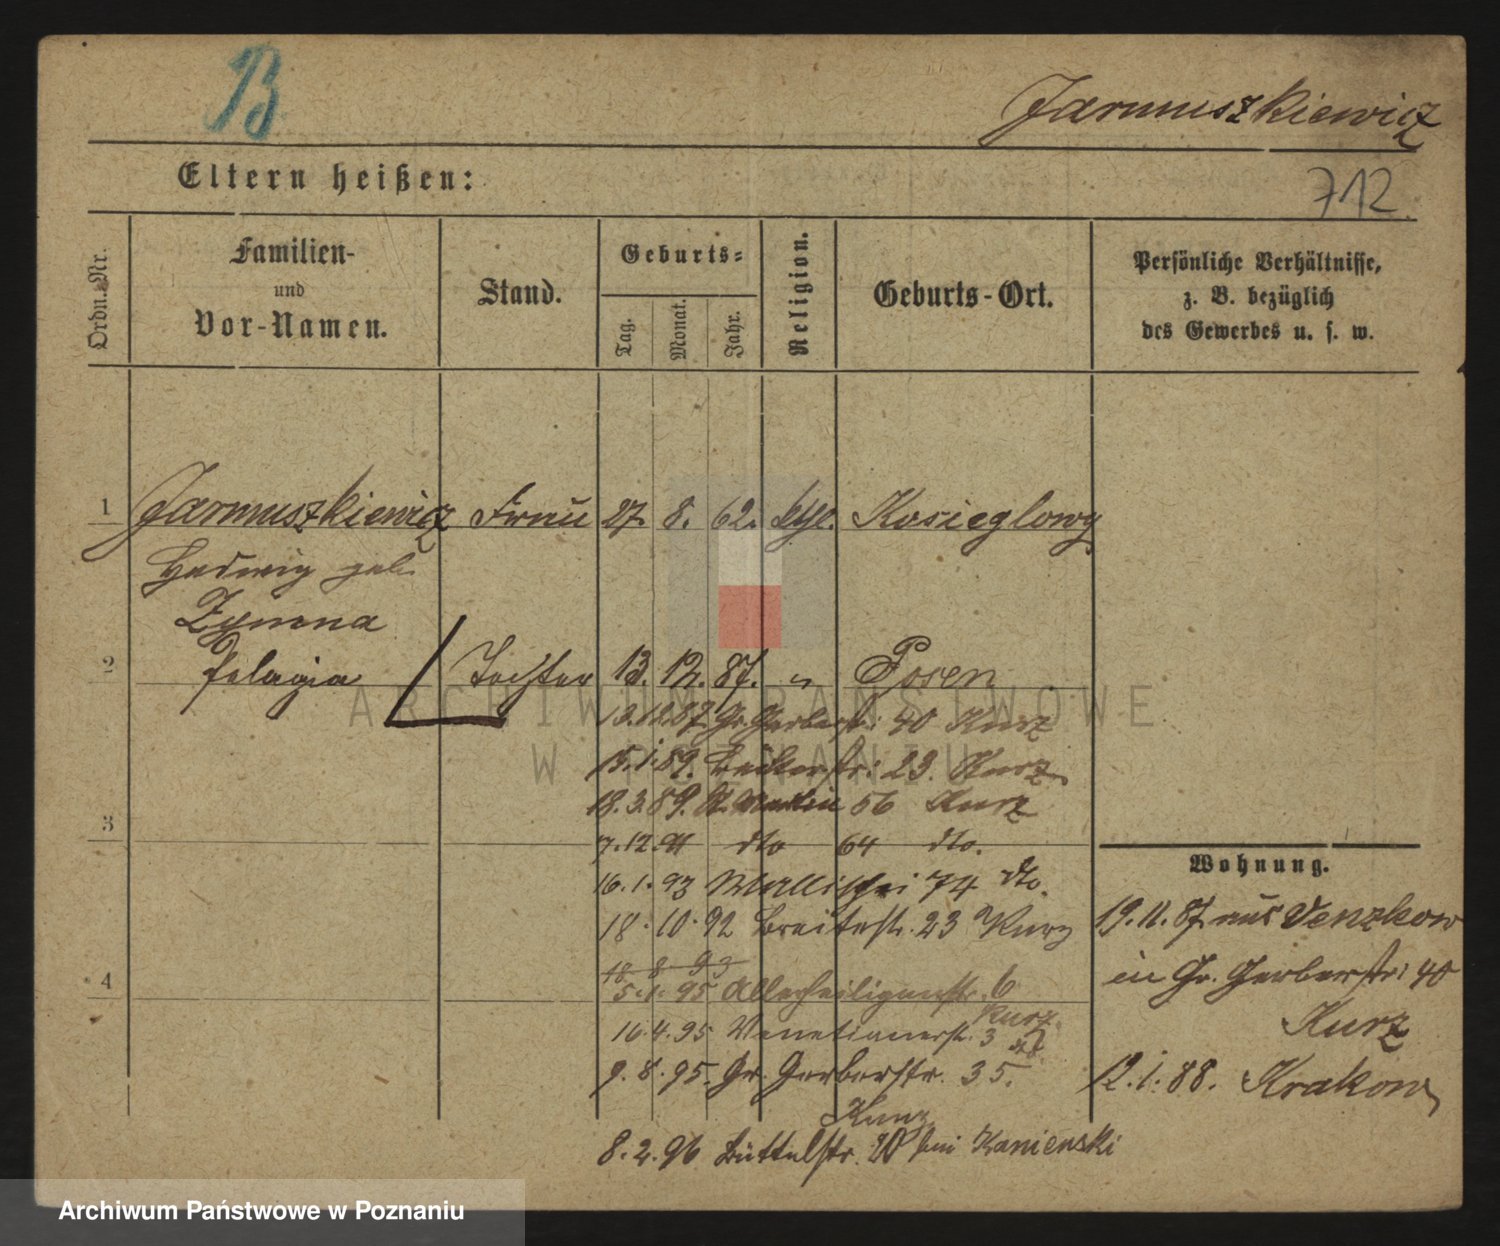 B
Jarmuszkiewicz
Eltern heißen:
712.
Ordn. Nr.
Familien-
und
Vor-Namen.
Stand.
Geburts-
Tag.
Monat.
Jahr.
Religion.
Geburts-Ort.
Persönliche Verhältnisse,
z. B. bezüglich
des Gewerbes u. s. w.
1 Jarmuszkiewicz Frau 27. 8. 62. kth. Kosieglowy
Hedwig geb.
Zymna
2 Pelagia Tochter 13. 12. 87. " Posen
Gr. Gerberstr: 40 Kurz
15.1.89. Bäckerstr: 23. Kurz
18.3.89. St. Martin 56 Kurz
3
7.12.91 dto 64 dto.
16.1.93 Wallischei 74 dto.
18.10.92 Breitestr. 23 Kurz
18 8 93
4
5.1.95 Allerheiligenstr. 6
Kurz.
16.4.95 Venetianerstr. 3
9.8.95. Gr. Gerberstr. 35.
Kurz
8.2.96 Büttelstr. 20 bei Kanienski
Wohnung.
19.11.87. aus Venzkow
in Gr. Gerberstr: 40
Kurz
12.1.88. Krakow
ARCHIWUM PAŃSTWOWE
W POZNANIU
Archiwum Państwowe w Poznaniu